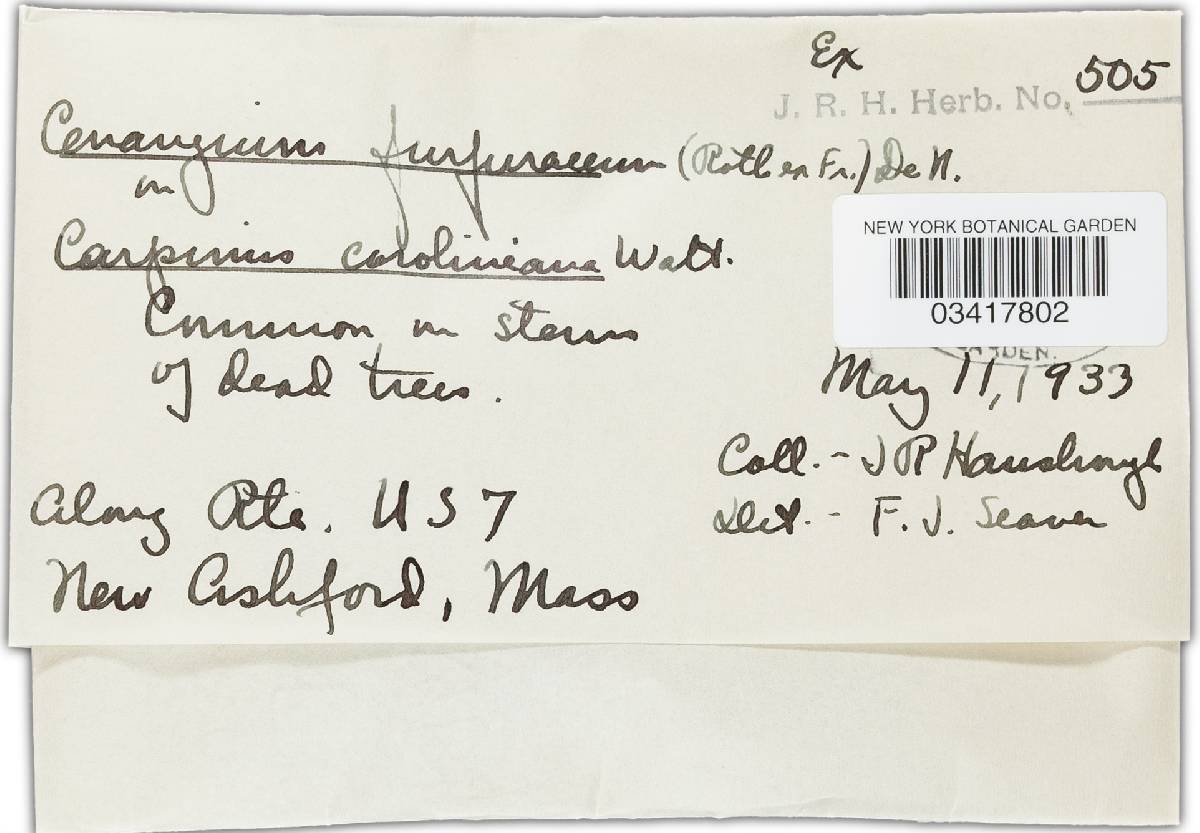 Ex
J. R. H. Herb. No. 505
Cenangium furfuraceum (Roth ex Fr.) De N.
on
Carpinus caroliniana Walt.
Common on stems
of dead trees.
NEW YORK BOTANICAL GARDEN
03417802
GARDEN.
May 11, 1933
Coll. - J R Hansbrough
Det. - F. J. Seaver
Along Rte. U S 7
New Ashford, Mass